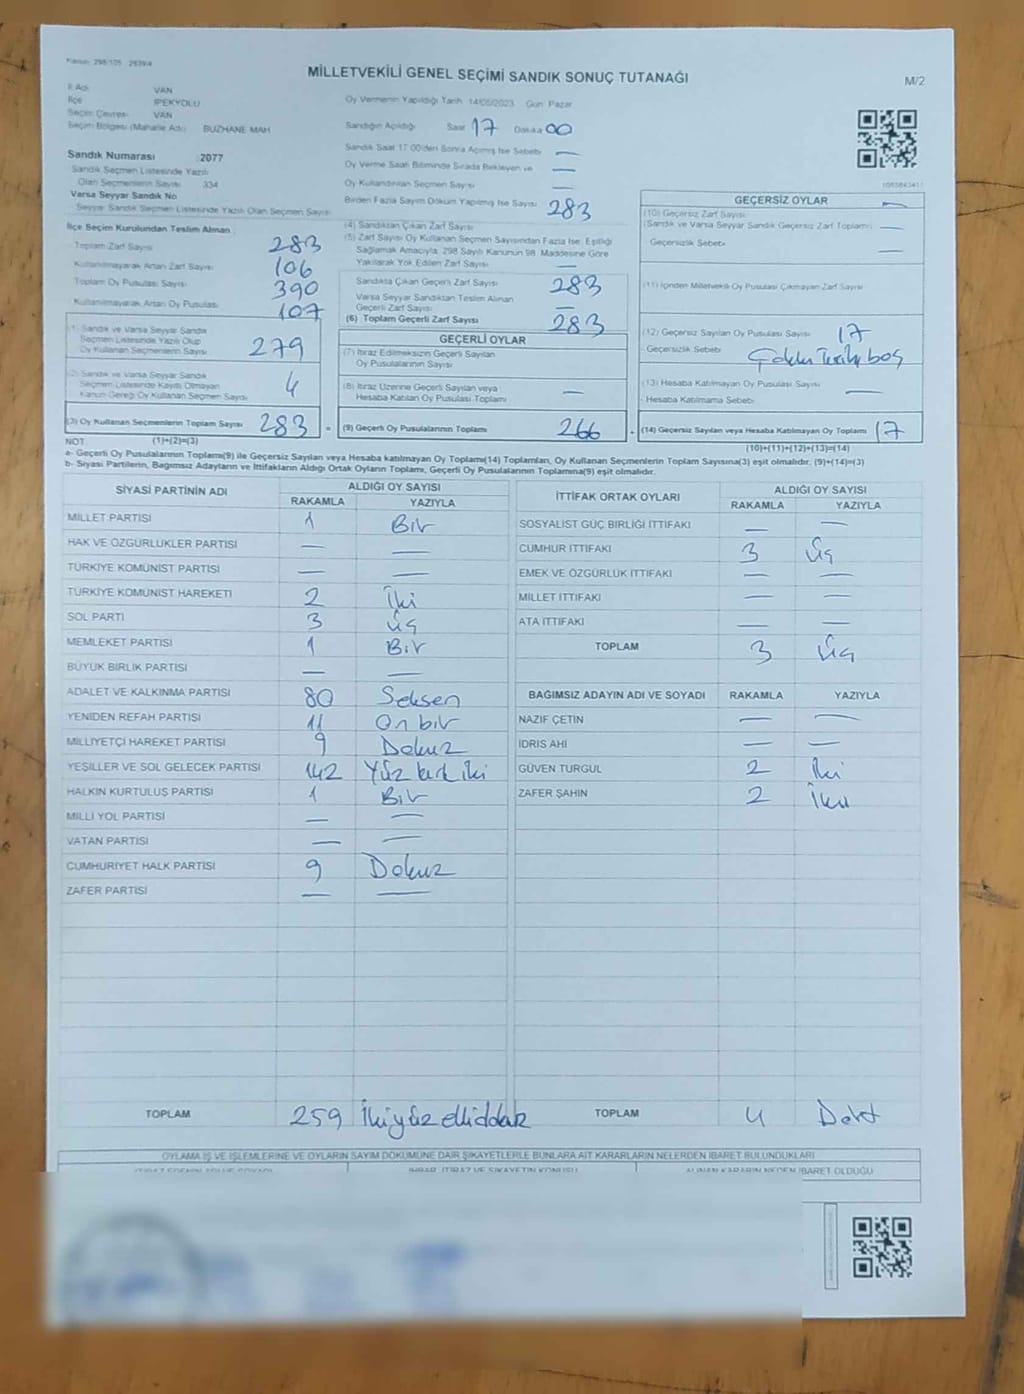 MİLLETVEKİLİ GENEL SEÇİMİ SANDIK SONUÇ TUTANAĞI
M/2
İl Adı VAN
İlçe İPEKYOLU
Seçim Çevresi VAN
Seçim Bölgesi (Mahalle Adı) BUZHANE MAH
Sandık Numarası 2077
Sandık Seçmen Listesinde Yazılı
Olan Seçmenlerin Sayısı 334
Varsa Seyyar Sandık No
Seyyar Sandık Seçmen Listesinde Yazılı Olan Seçmen Sayısı
Oy Vermenin Yapıldığı Tarih 14/05/2023 Gün Pazar
Sandığın Açıldığı Saat 17 Dakika 00
Sandık Saat 17:00'den Sonra Açılmış İse Sebebi —
Oy Verme Saati Bitiminde Sırada Bekleyen ve —
Oy Kullandırılan Seçmen Sayısı —
Birden Fazla Sayım Döküm Yapılmış İse Sayısı 283
İlçe Seçim Kurulundan Teslim Alınan
Toplam Zarf Sayısı 283
Kullanılmayarak Artan Zarf Sayısı 106
Toplam Oy Pusulası Sayısı 390
Kullanılmayarak Artan Oy Pusulası 107
(1) Sandık ve Varsa Seyyar Sandık
Seçmen Listesinde Yazılı Olup
Oy Kullanan Seçmenlerin Sayısı 279
(2) Sandık ve Varsa Seyyar Sandık
Seçmen Listesinde Kayıtlı Olmayan
Kanun Gereği Oy Kullanan Seçmen Sayısı 4
(3) Oy Kullanan Seçmenlerin Toplam Sayısı 283
(1)+(2)=(3)
(4) Sandıktan Çıkan Zarf Sayısı
(5) Zarf Sayısı Oy Kullanan Seçmen Sayısından Fazla İse, Eşitliği
Sağlamak Amacıyla, 298 Sayılı Kanunun 98. Maddesine Göre
Yakılarak Yok Edilen Zarf Sayısı —
Sandıkta Çıkan Geçerli Zarf Sayısı 283
Varsa Seyyar Sandıktan Teslim Alınan
Geçerli Zarf Sayısı —
(6) Toplam Geçerli Zarf Sayısı 283
GEÇERLİ OYLAR
(7) İtiraz Edilmeksizin Geçerli Sayılan
Oy Pusulasının Sayısı
(8) İtiraz Üzerine Geçerli Sayılan veya
Hesaba Katılan Oy Pusulası Toplamı —
(9) Geçerli Oy Pusulalarının Toplamı 266
GEÇERSİZ OYLAR —
(10) Geçersiz Zarf Sayısı
(Sandık ve Varsa Seyyar Sandık Geçersiz Zarf Toplamı) —
Geçersizlik Sebebi —
(11) İçinden Milletvekili Oy Pusulası Çıkmayan Zarf Sayısı
(12) Geçersiz Sayılan Oy Pusulası Sayısı 17
Geçersizlik Sebebi boş
(13) Hesaba Katılmayan Oy Pusulası Sayısı —
Hesaba Katılmama Sebebi
(14) Geçersiz Sayılan veya Hesaba Katılmayan Oy Toplamı 17
(10)+(11)+(12)+(13)=(14)
NOT
a- Geçerli Oy Pusulalarının Toplamı(9) ile Geçersiz Sayılan veya Hesaba katılmayan Oy Toplamı(14) Toplamları, Oy Kullanan Seçmenlerin Toplam Sayısına(3) eşit olmalıdır. (9)+(14)=(3)
b- Siyasi Partilerin, Bağımsız Adayların ve İttifakların Aldığı Ortak Oyların Toplamı, Geçerli Oy Pusulalarının Toplamına(9) eşit olmalıdır.
SİYASİ PARTİNİN ADI ALDIĞI OY SAYISI
RAKAMLA YAZIYLA
MİLLET PARTİSİ 1 Bir
HAK VE ÖZGÜRLÜKLER PARTİSİ — —
TÜRKİYE KOMÜNİST PARTİSİ — —
TÜRKİYE KOMÜNİST HAREKETİ 2 İki
SOL PARTİ 3 Üç
MEMLEKET PARTİSİ 1 Bir
BÜYÜK BİRLİK PARTİSİ — —
ADALET VE KALKINMA PARTİSİ 80 Seksen
YENİDEN REFAH PARTİSİ 11 On bir
MİLLİYETÇİ HAREKET PARTİSİ 9 Dokuz
YEŞİLLER VE SOL GELECEK PARTİSİ 142 Yüz kırk iki
HALKIN KURTULUŞ PARTİSİ 1 Bir
MİLLİ YOL PARTİSİ — —
VATAN PARTİSİ — —
CUMHURİYET HALK PARTİSİ 9 Dokuz
ZAFER PARTİSİ — —
TOPLAM 259
İTTİFAK ORTAK OYLARI ALDIĞI OY SAYISI
RAKAMLA YAZIYLA
SOSYALİST GÜÇ BİRLİĞİ İTTİFAKI — —
CUMHUR İTTİFAKI 3 Üç
EMEK VE ÖZGÜRLÜK İTTİFAKI — —
MİLLET İTTİFAKI — —
ATA İTTİFAKI — —
TOPLAM 3 Üç
BAĞIMSIZ ADAYIN ADI VE SOYADI RAKAMLA YAZIYLA
NAZİF ÇETİN — —
İDRİS AHİ — —
GÜVEN TURGUL 2 İki
ZAFER ŞAHİN 2 İki
TOPLAM 4 Dört
OYLAMA İŞ VE İŞLEMLERİNE VE OYLARIN SAYIM DÖKÜMÜNE DAİR ŞİKAYETLERLE BUNLARA AİT KARARLARIN NELERDEN İBARET BULUNDUKLARI
ALINAN KARARIN NEDEN İBARET OLDUĞU